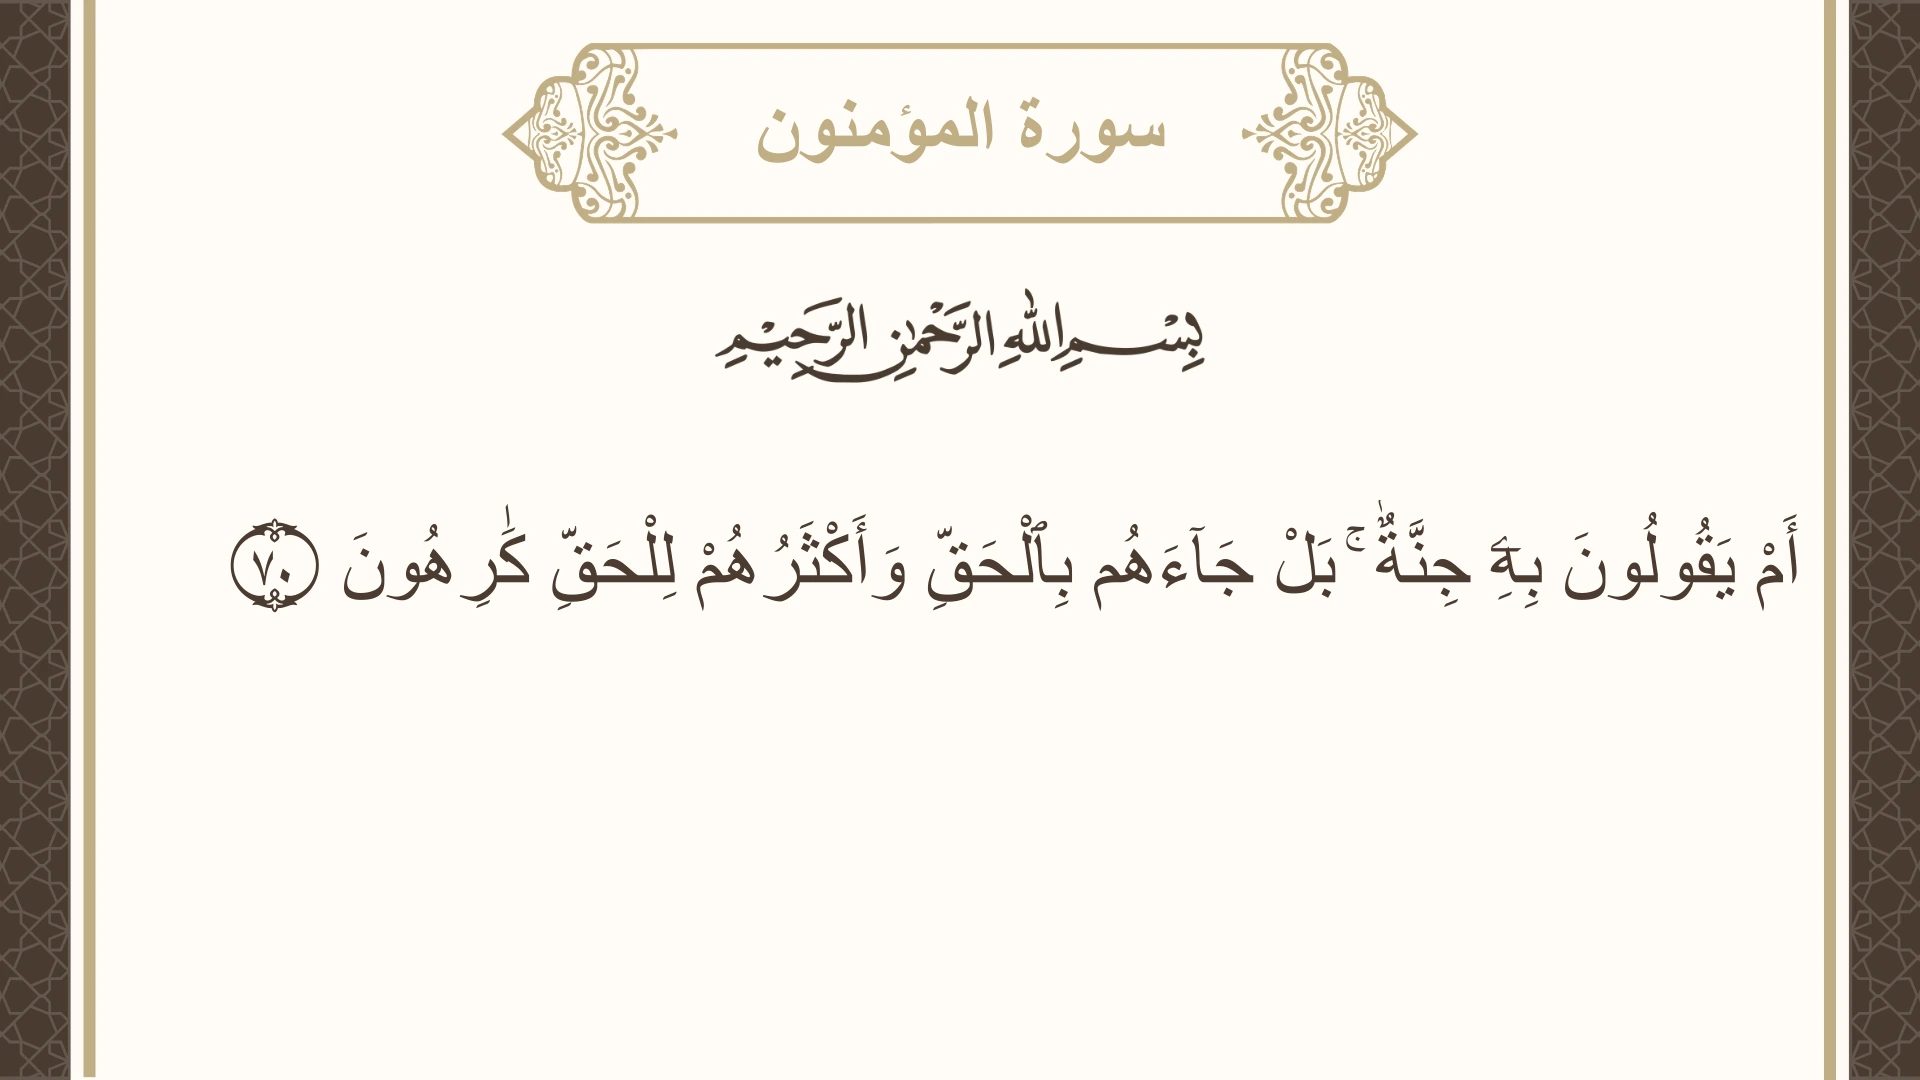 سورة المؤمنون
بِسْمِ اللهِ الرَّحْمٰنِ الرَّحِيْمِ
أَمْ يَقُولُونَ بِهِۦٓ جِنَّةٌۢ ۚ بَلْ جَآءَهُم بِٱلْحَقِّ وَأَكْثَرُهُمْ لِلْحَقِّ كَٰرِهُونَ ٧٠